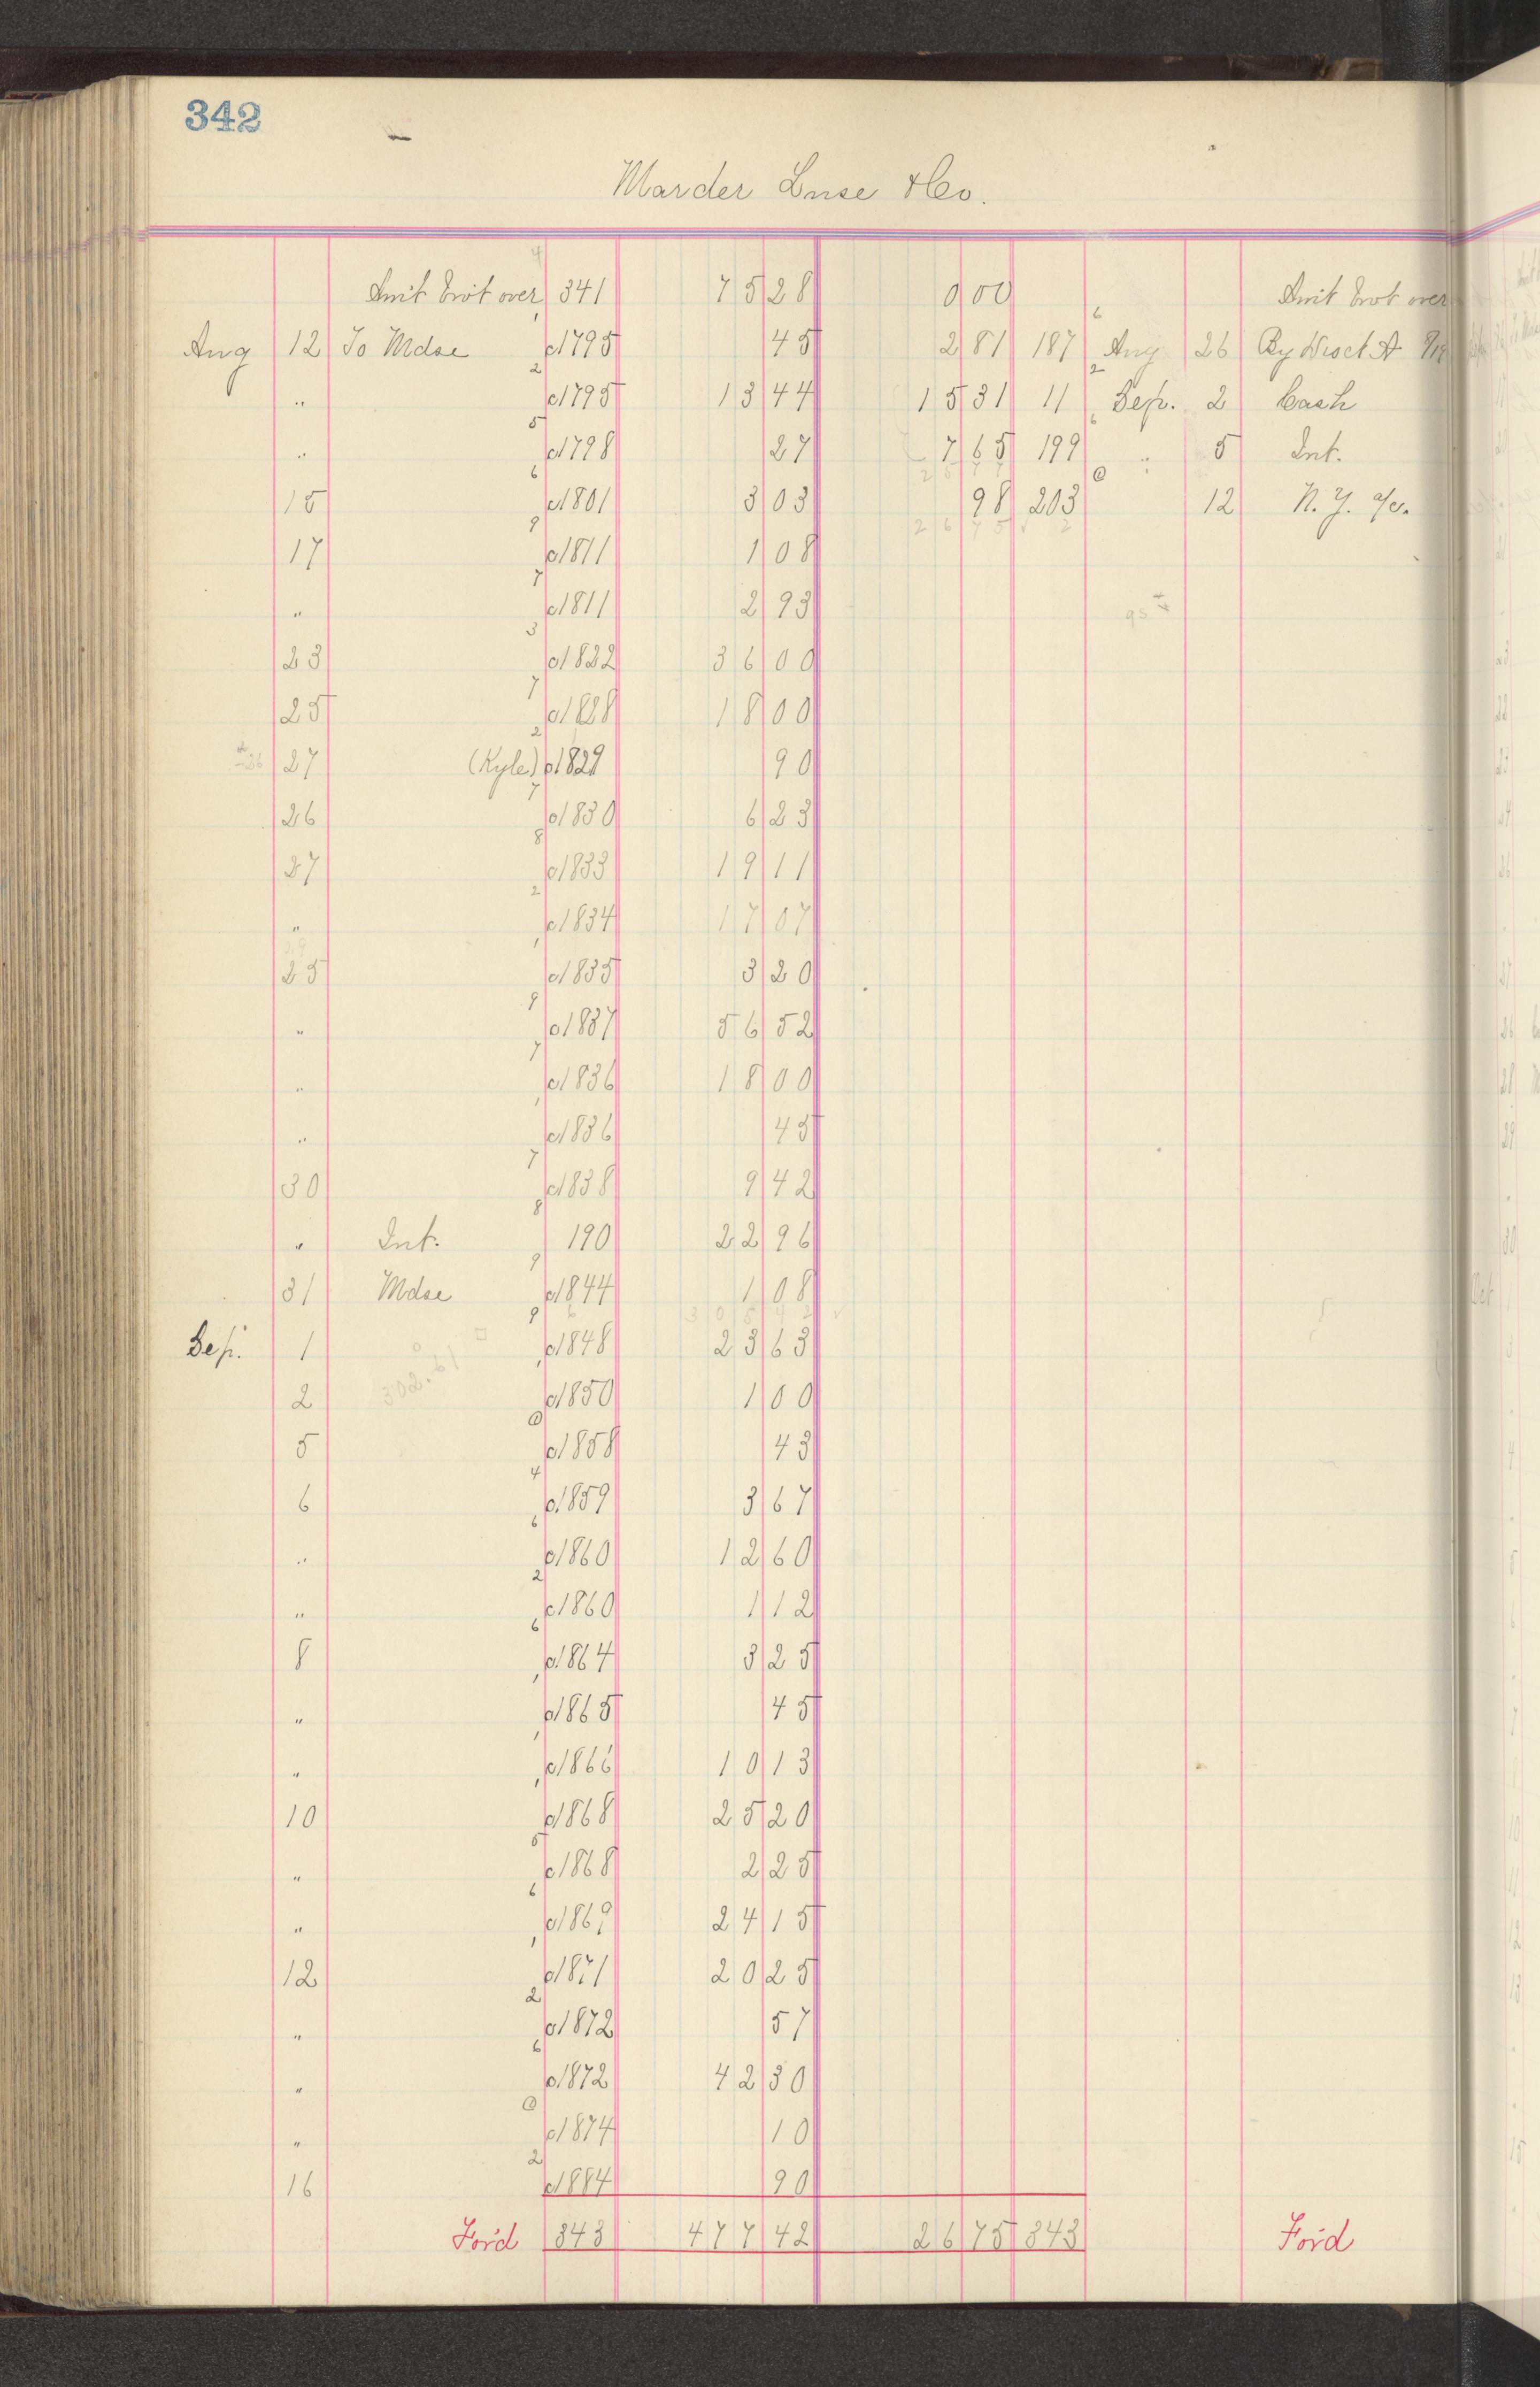 342
Marder Luse & Co.
Amt brot over 341 75 28 0 00 Amt brot over
Aug 12 To Mdse c1795 45 2 81 187 Aug 26 By Disct
" c1795 13 44 15 31 11 Sep. 2 Cash
" c1798 27 7 65 199 " 5 Int.
15 c1801 3 03 98 203 12 N. Y. a/c.
17 c1811 1 08
" c1811 2 93
23 c1822 36 00
25 c1828 18 00
27 (Kyle) c1829 90
26 c1830 6 23
27 c1833 19 11
" c1834 17 07
25 c1835 3 20
" c1837 56 52
" c1836 18 00
" c1836 45
30 c1838 9 42
" Int. 190 22 96
31 Mdse c1844 1 08
305 42
Sep. 1 c1848 23 63
302.61
2 c1850 1 00
5 c1858 43
6 c1859 3 67
" c1860 12 60
" c1860 1 12
8 c1864 3 25
" c1865 45
" c1866 10 13
10 c1868 25 20
" c1868 2 25
" c1869 24 15
12 c1871 20 25
" c1872 57
" c1872 42 30
" c1874 10
16 c1884 90
For'd 343 477 42 26 75 343 For'd